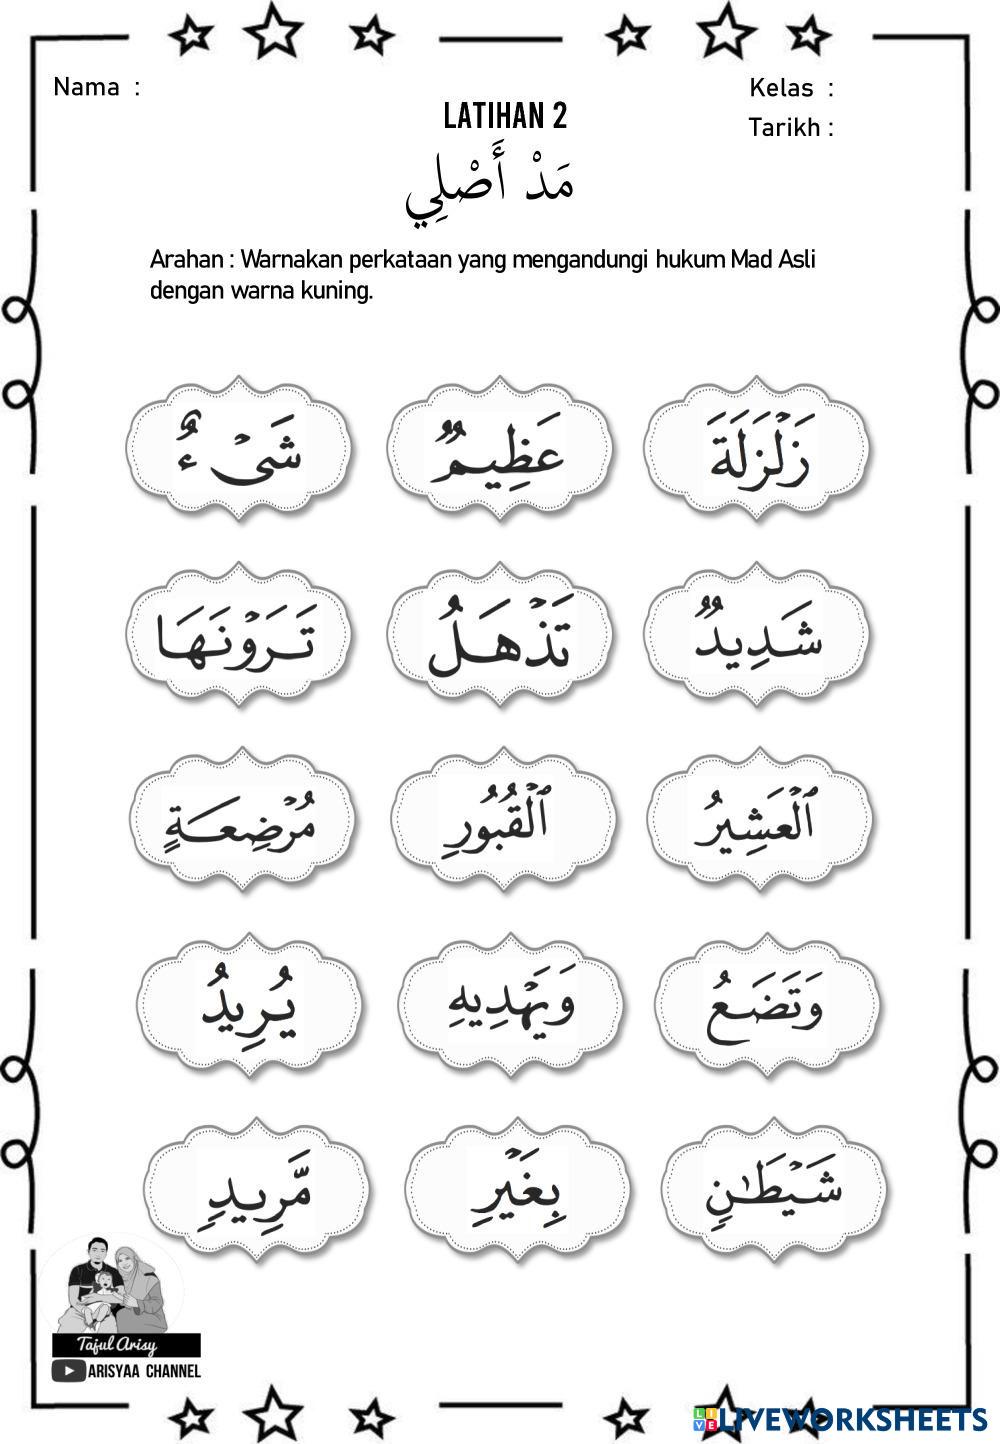 Nama :
Kelas :
LATIHAN 2
Tarikh :
مَدْ أَصْلِي
Arahan : Warnakan perkataan yang mengandungi hukum Mad Asli
dengan warna kuning.
زَلۡزَلَةَ عَظِيمٌ شَىۡءٌ
شَدِيدٌ تَذۡهَلُ تَرَوۡنَهَا
ٱلۡعَشِيرُ ٱلۡقُبُورِ مُرۡضِعَةٍ
وَتَضَعُ وَيَهۡدِيهِ يُرِيدُ
شَيۡطَٰنٖ بِغَيۡرِ مَّرِيدٖ
Tajul Arisy
ARISYAA CHANNEL
LIVEWORKSHEETS